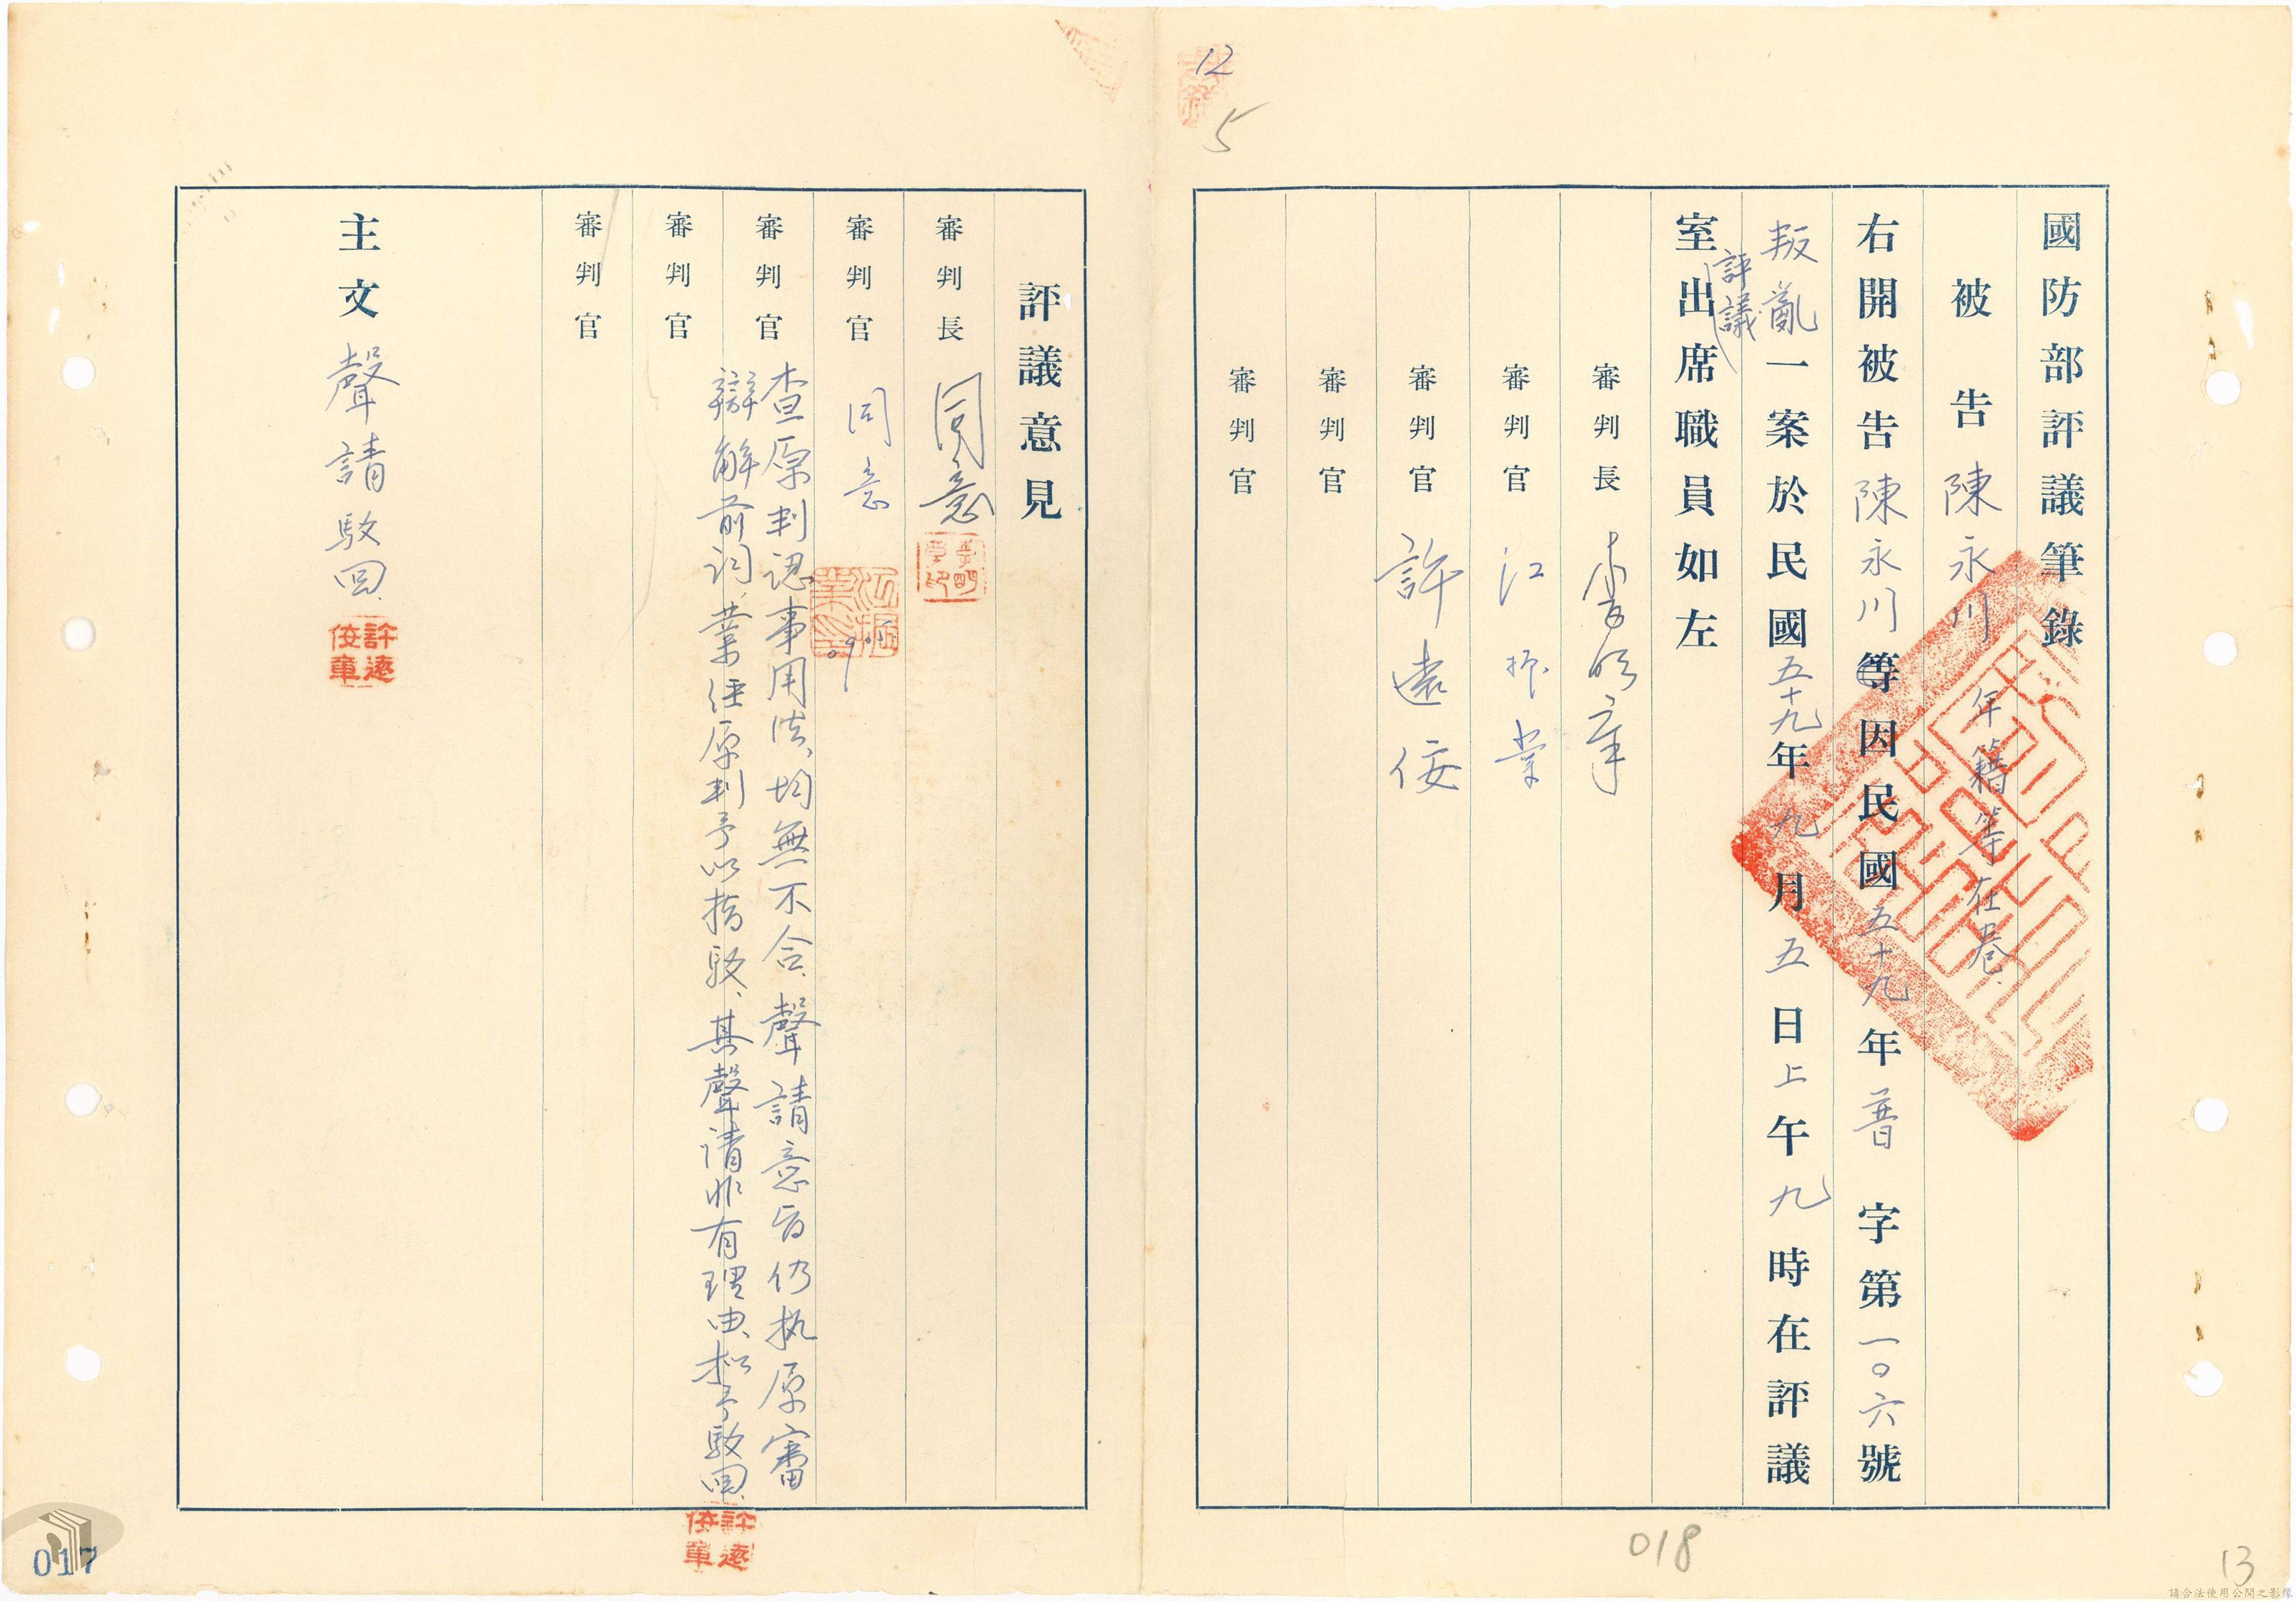 12
5
國防部評議筆錄
被告 陳永川 年籍等在卷
右開被告陳永川等因民國五十九年普字第一〇六號
叛亂一案於民國五十九年九月五日上午九時在評議
(評議)
室出席職員如左
審判長 李明章
審判官 江振業
審判官 許遠俀
審判官
審判官
評議意見
審判長 同意
審判官 同意
09.05
審判官 查原判認事用法、均無不合、聲請意旨仍執原審
辯解前詞、業經原判予以指駁、其聲請非有理由、擬予駁回、
審判官
審判官
主文 聲請駁回、
許遠俀章
許遠俀章
017
018
13
請合法使用公開之影像